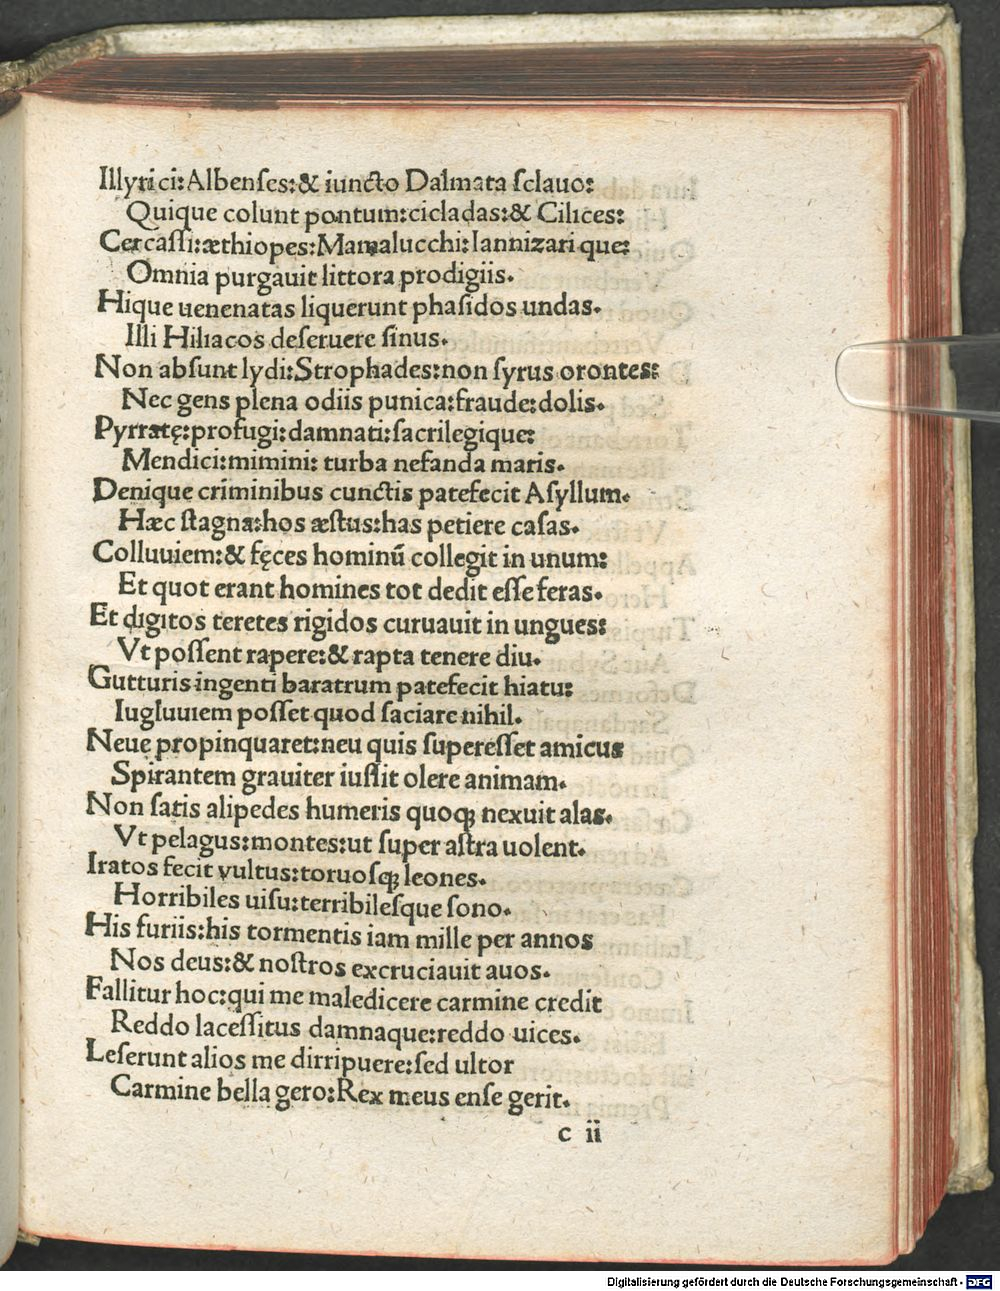 Illyrici:Albenses:& iuncto Dalmata sclauo:
Quique colunt pontum:cicladas:& Cilices:
Cercassi:æthiopes:Mamalucchi:Iannizari que:
Omnia purgauit littora prodigiis.
Hique uenenatas liquerunt phasidos undas.
Illi Hiliacos deseruere sinus.
Non absunt lydi:Strophades:non syrus orontes:
Nec gens plena odiis punica:fraude:dolis.
Pyrratę:profugi:damnati:sacrilegique:
Mendici:mimini: turba nefanda maris.
Denique criminibus cunctis patefecit Asyllum.
Hæc stagna:hos æstus:has petiere casas.
Colluuiem:& fęces hominū collegit in unum:
Et quot erant homines tot dedit esse feras.
Et digitos teretes rigidos curuauit in ungues:
Vt possent rapere:& rapta tenere diu.
Gutturis ingenti baratrum patefecit hiatu:
Iugluuiem posset quod saciare nihil.
Neue propinquaret:neu quis superesset amicus
Spirantem grauiter iussit olere animam.
Non satis alipedes humeris quoqꝫ nexuit alas.
Vt pelagus:montes:ut super astra uolent.
Iratos fecit vultus:toruosqꝫ leones.
Horribiles uisu:terribilesque sono.
His furiis:his tormentis iam mille per annos
Nos deus:& nostros excruciauit auos.
Fallitur hoc:qui me maledicere carmine credit
Reddo lacessitus damnaque:reddo uices.
Leserunt alios me dirripuere:sed ultor
Carmine bella gero:Rex meus ense gerit.
c ii
Digitalisierung gefördert durch die Deutsche Forschungsgemeinschaft - DFG